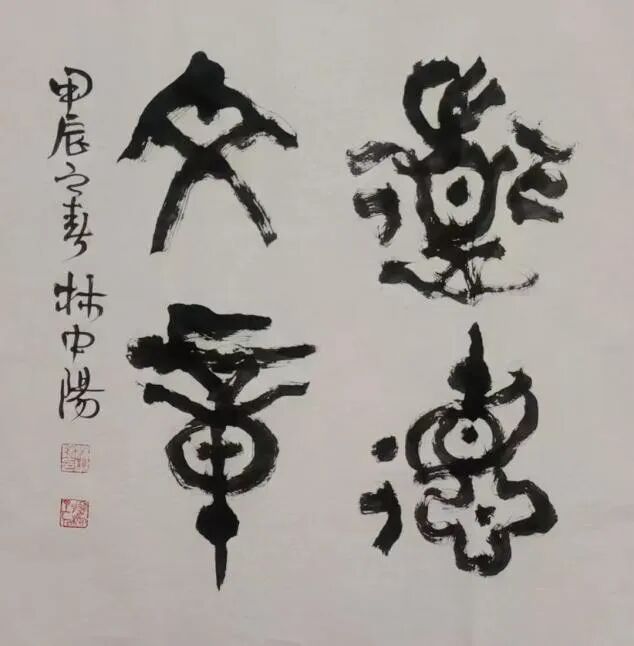 道德
文章
甲辰之春 林中陽